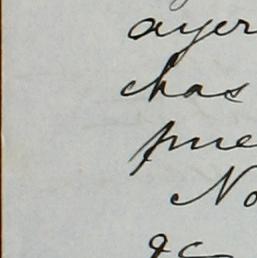 ayer
chas
pue
No
&c